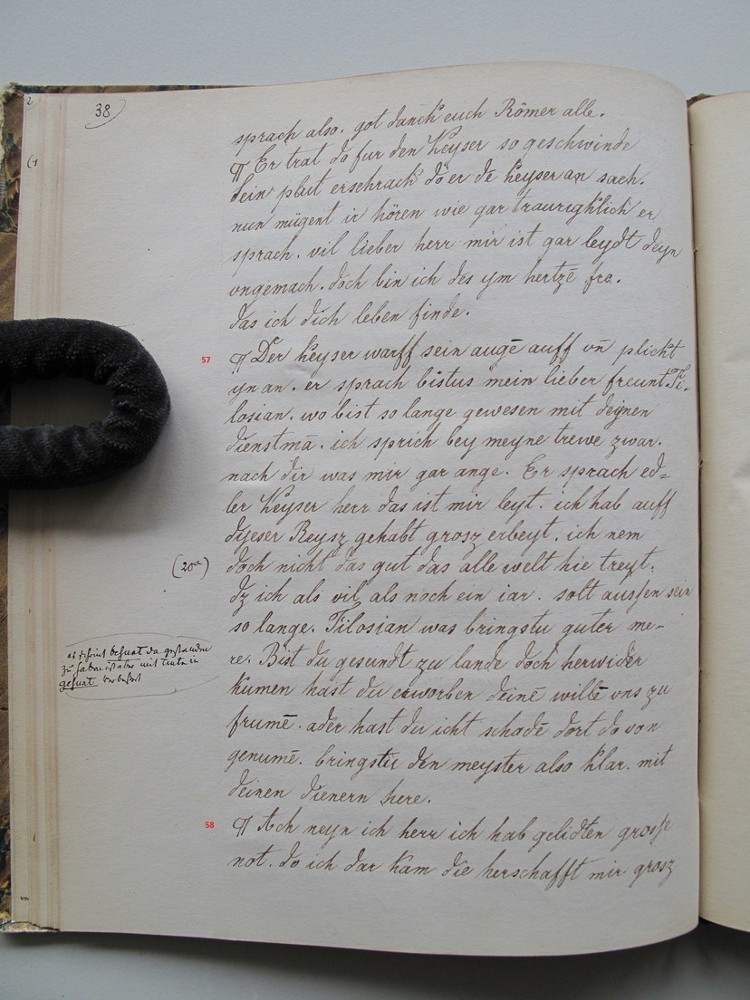 38
sprach also. got danck euch Römer alle.
¶ Er trat do fur den Keyser so geschwinde
sein plut erschrack do er dē keyser an sach.
nun mügent ir hören wie gar traurighlich er
sprach. vil lieber herr mir ist gar leydt deyn
ongemach. doch bin ich des ym hertzē fro.
das ich dich leben finde.
57
¶ Der keyser warff sein augē auff vn̄ plickt
yn an. er sprach bistus mein lieber freunt. Ti-
losian. wo bist so lange gewesen mit deynen
dienstmā. ich sprich bey meyne trewe zwar.
nach dir was mir gar ange. Er sprach ed-
ler Keyser herr das ist mir leyt. ich hab auff
dyeser Reysz gehabt grosz erbeyt. ich nem
(20a) doch nicht das gut das alle welt hie treyt.
dz ich als vil als noch ein iar. solt aussen sein
so lange. Tilosian was bringstu guter me-
re. Bist du gesundt zu lande doch herwider
kumen hast du erworben deinē willē vns zu
frumē. ader hast du icht schadē dort do von
genumē. bringstu den meyster also klar. mit
deinen dienern here.
58
¶ Ach neyn ich herr ich hab gelidten grosse
not. do ich dar kam die herschafft mir grosz
es scheint gestanden
zu haben ist aber mit tinte in